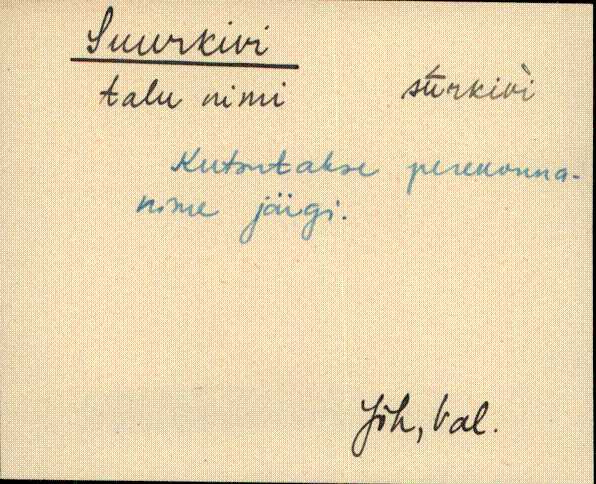 Suurkivi
talu nimi sūŕkivì
Kutsutakse perekonna-
nime järgi.
Jõh, Val.